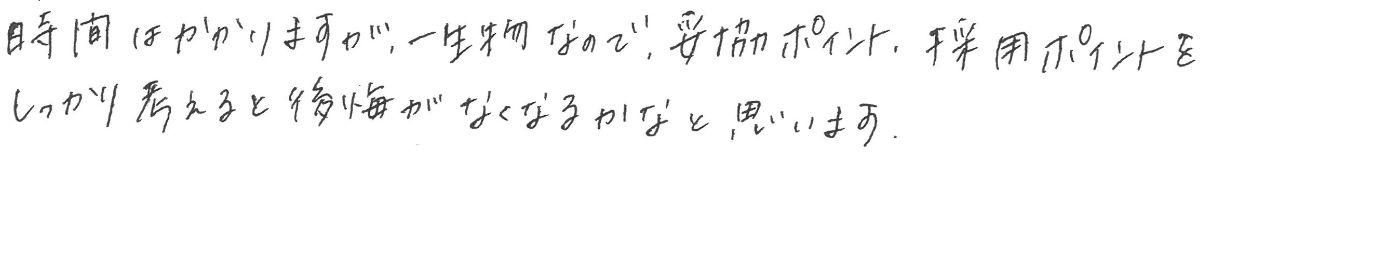 時間はかかりますが、一生物なので、妥協ポイント、採用ポイントを
しっかり考えると後悔がなくなるかなと思います.